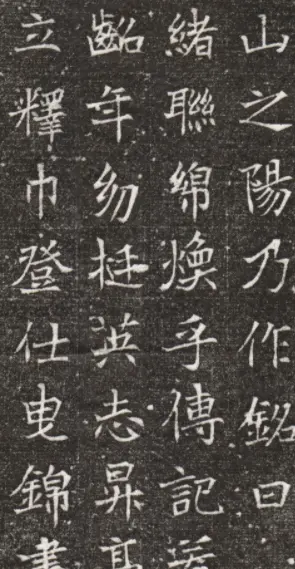 山之陽乃作銘曰
緒聯綿煥乎傳記
齠年幼挺英志昇高
立釋巾登仕曳錦書